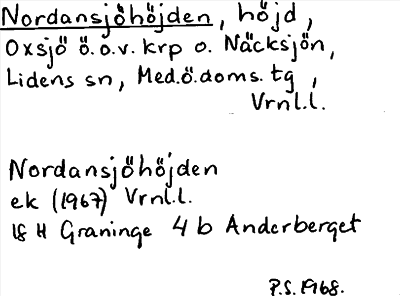 Nordansjöhöjden, höjd,
Oxsjö ö.o.v. krp o. Näcksjön,
Lidens sn, Med.ö.doms.tg,
Vrnl.l.
Nordansjöhöjden
ek (1967) Vrnl.l.
18 H Graninge 4 b Anderberget
P.S. 1968.